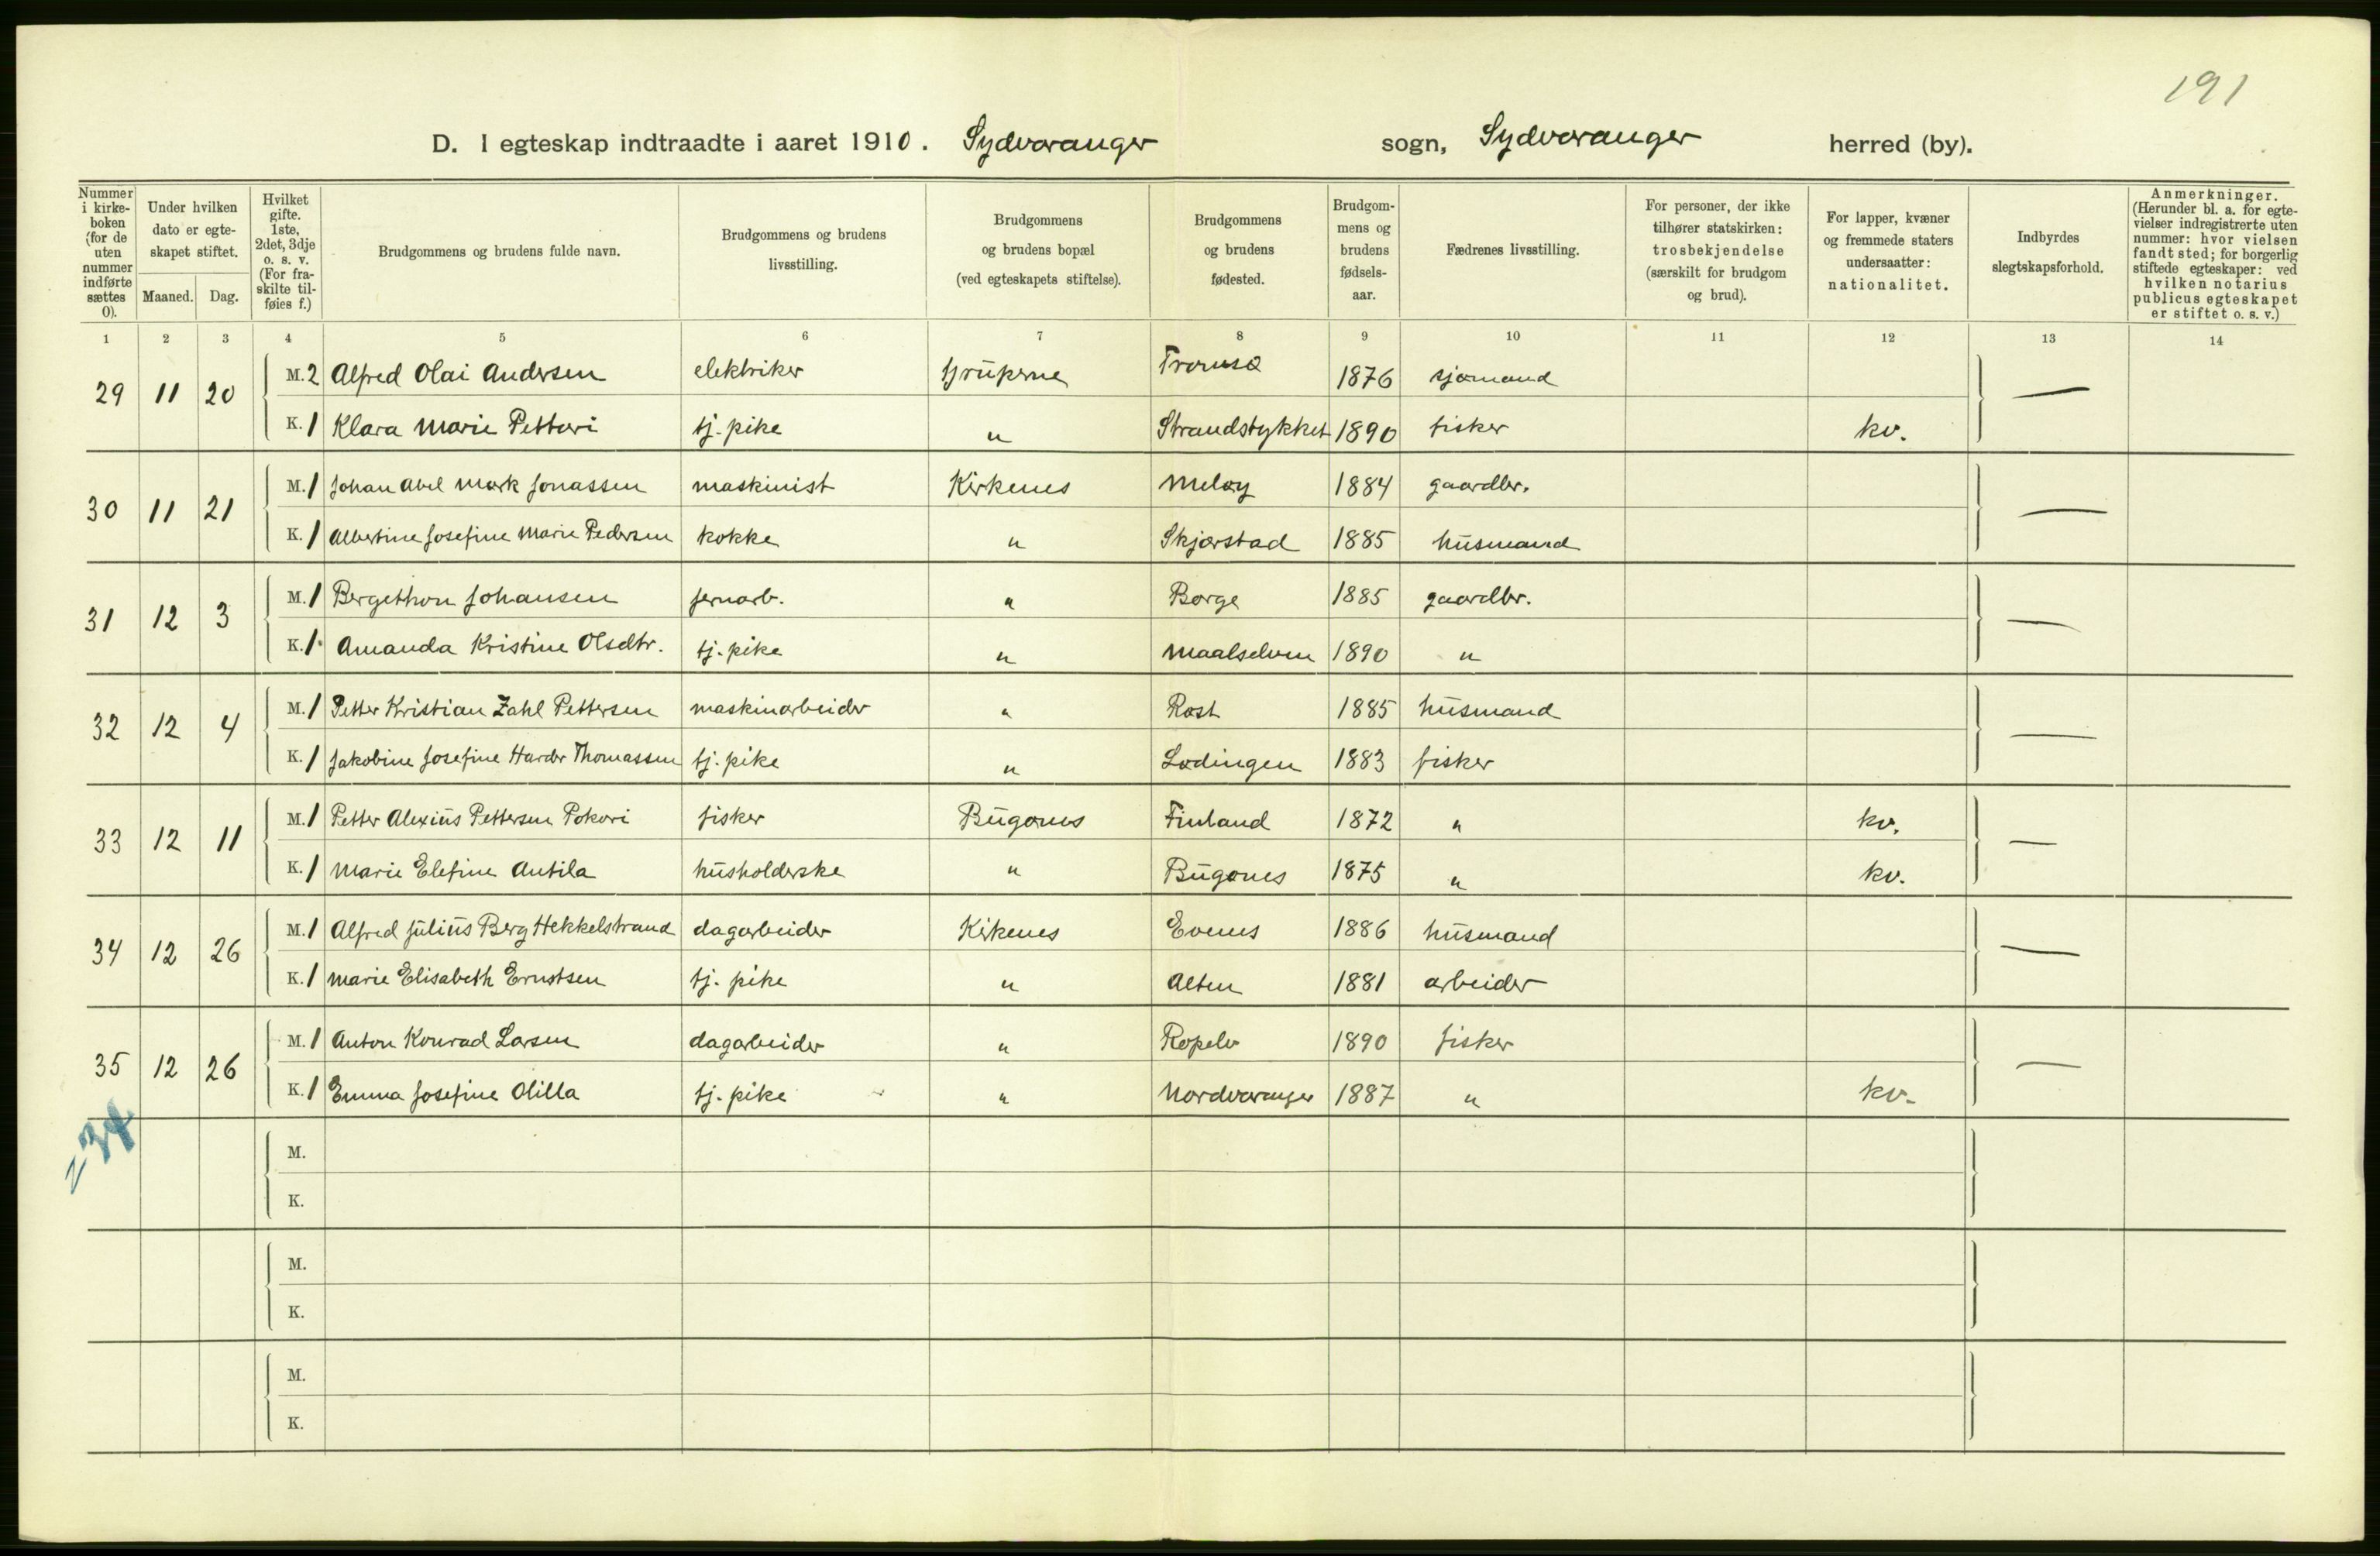 191
D. I egteskap indtraadte i aaret 1910. Sydvaranger sogn, Sydvaranger herred (by).
Nummer i kirke-boken (for de uten nummer indførte sættes 0).
Under hvilken dato er egte-skapet stiftet.
Maaned. Dag.
Hvilket gifte. 1ste, 2det, 3dje o. s. v. (For fra-skilte til-føies f.)
Brudgommens og brudens fulde navn.
Brudgommens og brudens livsstilling.
Brudgommens og brudens bopæl (ved egteskapets stiftelse).
Brudgommens og brudens fødested.
Brudgom-mens og brudens fødsels-aar.
Fædrenes livsstilling.
For personer, der ikke tilhører statskirken: trosbekjendelse (særskilt for brudgom og brud).
For lapper, kvæner og fremmede staters undersaatter: nationalitet.
Indbyrdes slegtskapsforhold.
Anmerkninger. (Herunder bl. a. for egte-vielser indregistrerte uten nummer: hvor vielsen fandt sted; for borgerlig stiftede egteskaper: ved hvilken notarius publicus egteskapet er stiftet o. s. v.)
1 2 3 4 5 6 7 8 9 10 11 12 13 14
29 11 20 M. 2 Alfred Olai Andersen elektriker Gruperne Tromsø 1876 sjømand —
K. 1 Klara Marie Pettari tj. pike " Strandstykket 1890 fisker kv.
30 11 21 M. 1 Johan Abel Mørk Jonassen maskinist Kirkenes Meløy 1884 gaardbr. —
K. 1 Albertine Josefine Marie Pedersen kokke " Skjærstad 1885 husmand
31 12 3 M. 1 Bergethon Johansen jernarb. " Borge 1885 gaardbr. —
K. 1 Amanda Kristine Olsdtr. tj. pike " Maalselven 1890 "
32 12 4 M. 1 Petter Kristian Zahl Pettersen maskinarbeider " Røst 1885 husmand —
K. 1 Jakobine Josefine Harder Thomassen tj. pike " Lødingen 1883 fisker
33 12 11 M. 1 Petter Alexius Pettersen Pokari fisker Bugønes Finland 1872 " kv. —
K. 1 Marie Elefine Antila husholderske " Bugønes 1875 " kv.
34 12 26 M. 1 Alfred Julius Berg Hekkelstrand dagarbeider Kirkenes Evenes 1886 husmand —
K. 1 Marie Elisabeth Ernstsen tj. pike " Alten 1881 arbeider
35 12 26 M. 1 Anton Konrad Larsen dagarbeider " Ropelv 1890 fisker —
K. 1 Emma Josefine Olilla tj. pike " Nordvaranger 1887 " kv.
=34
M.
K.
M.
K.
M.
K.